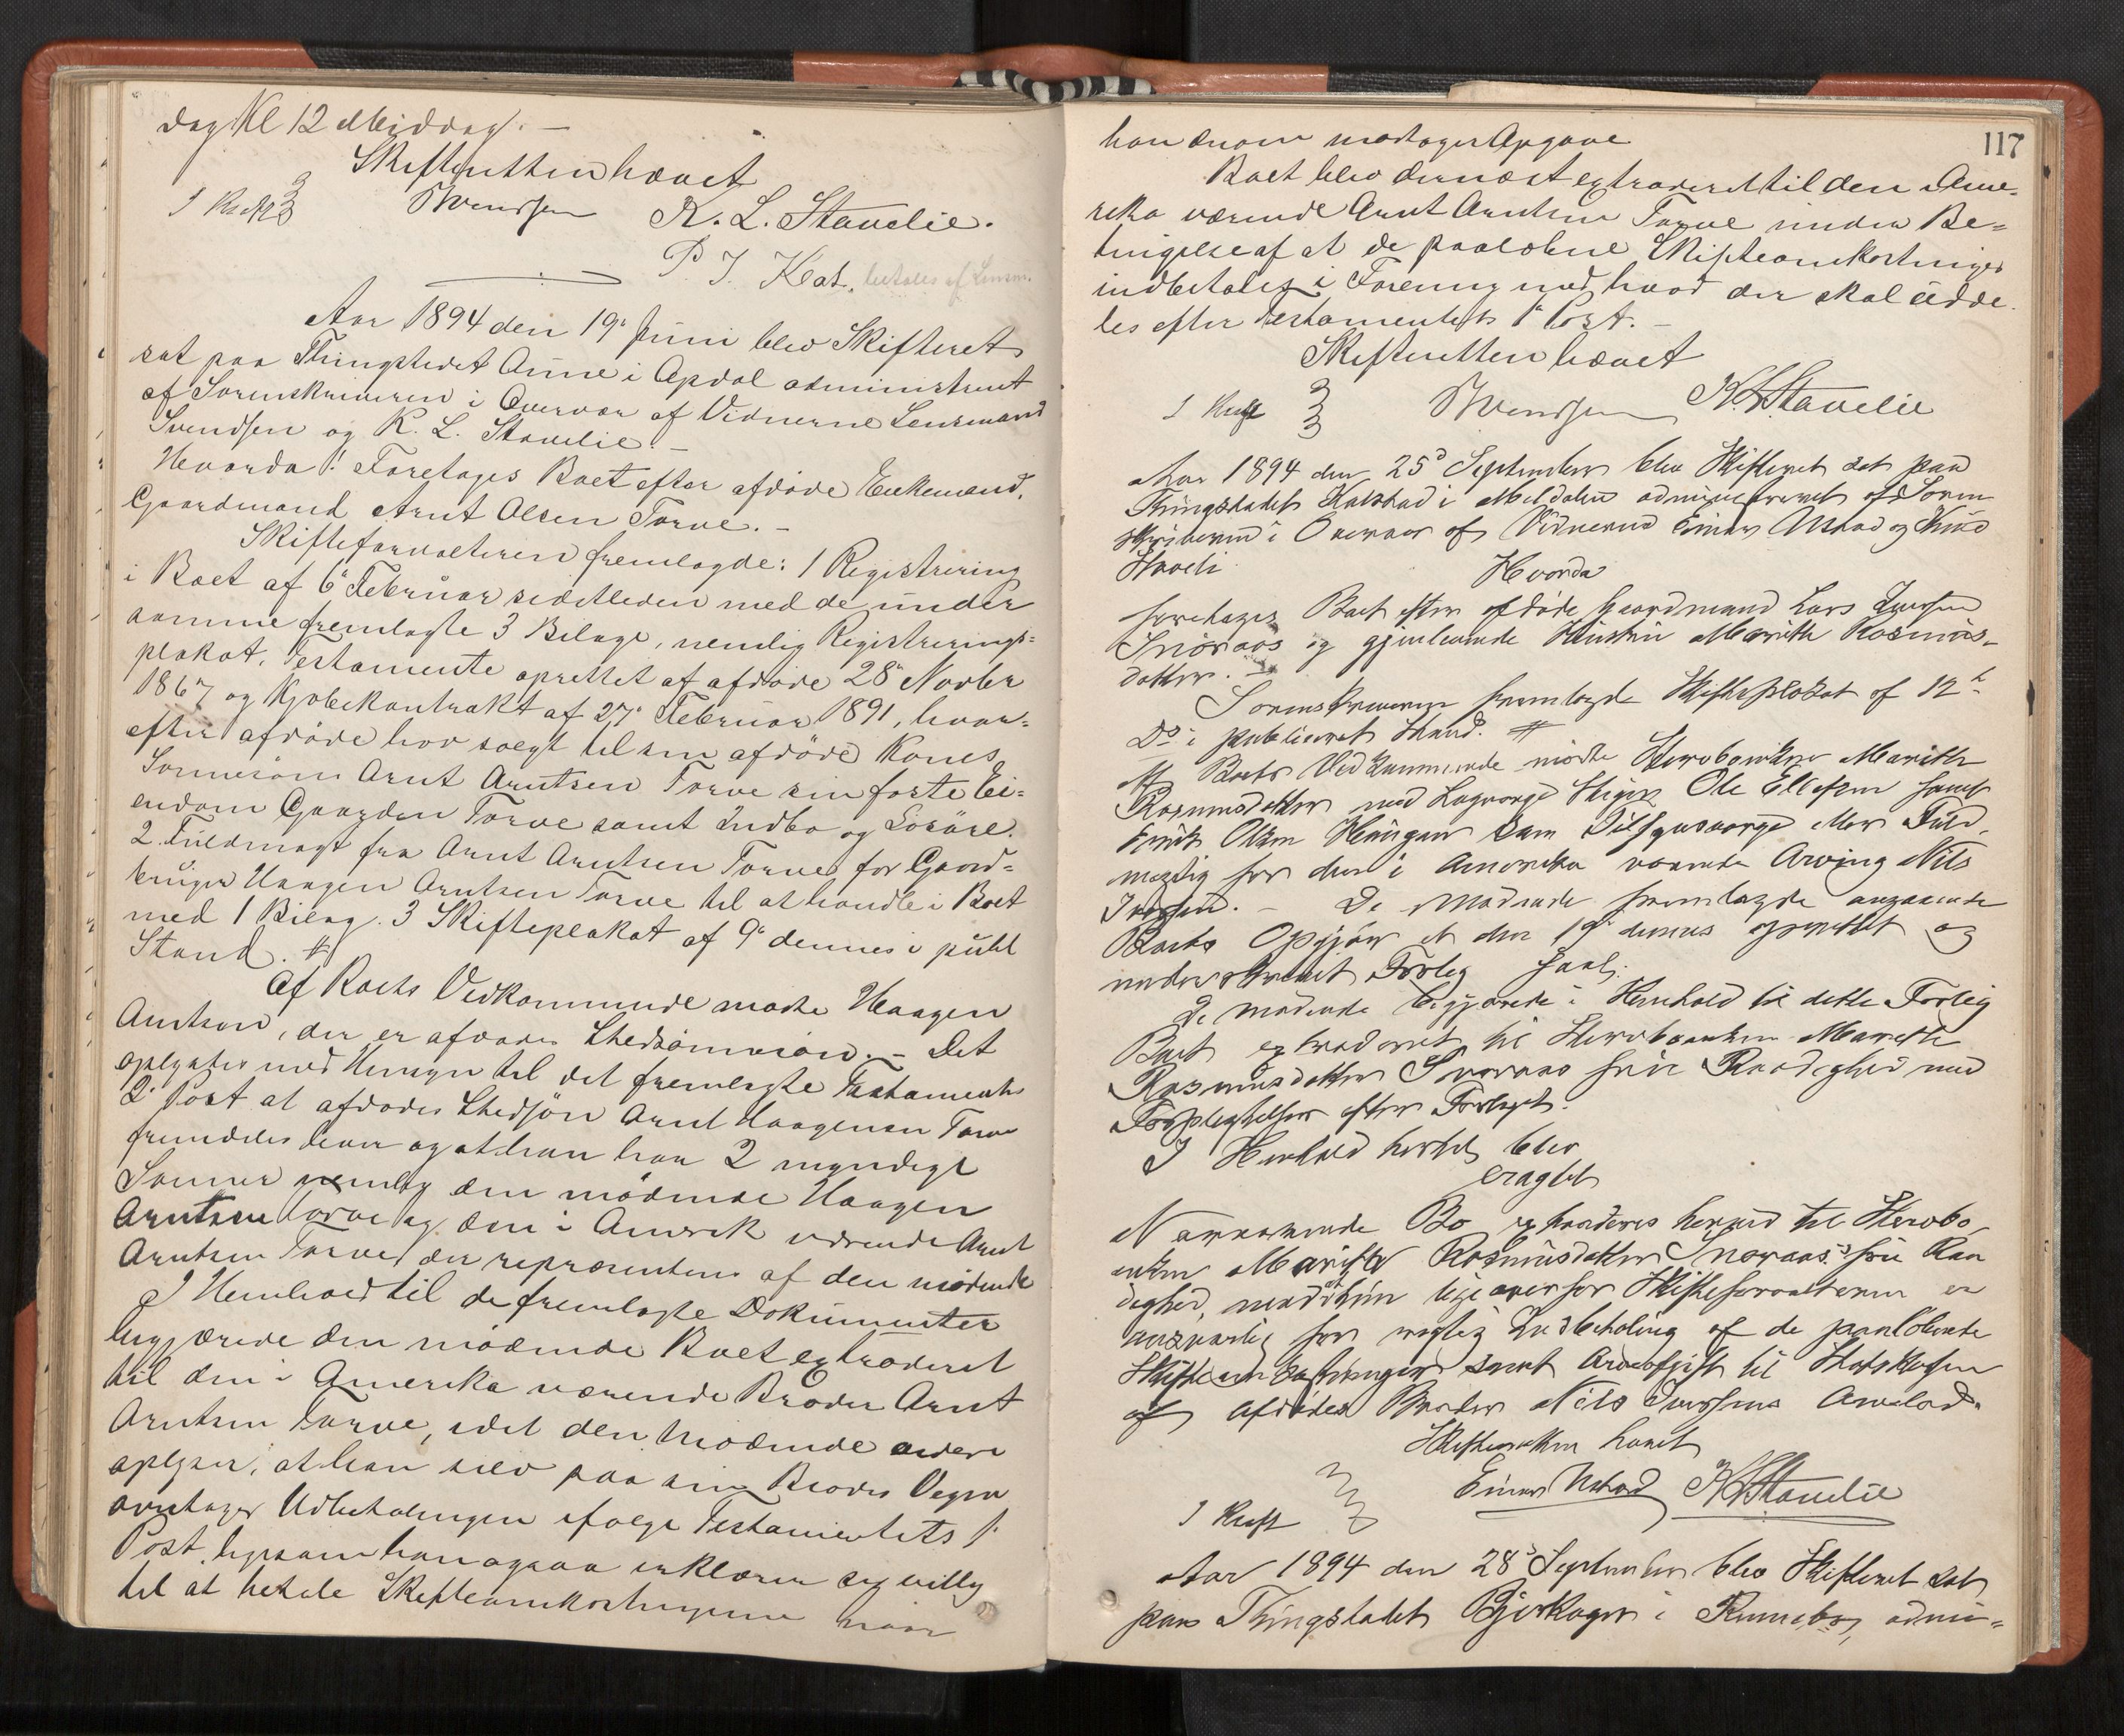 dag Kl 12 Middag. —
Skifteretten hævet
Svendsen K. L. Stavelie.
P. T. Kat. betales af Lensm.
Aar 1894 den 19de Juni blev Skifteret
sat paa Thingstedet Aune i Opdal administreret
af Sorenskriveren i Overvær af Vidnerne Lensmand
Svendsen og K. L. Stavelie. —
Hvorda! Foretages Boet efter afdøde Enkemand,
Gaardmand Arnt Olsen Torve. —
Skifteforvalteren fremlagde: 1 Registrering
i Boet af 6te Februar sidstleden med de under
samme fremlagte 3 Bilage, nemlig Registrerings=
plakat, Testamente oprettet af afdøde 28de Novbr
1867 og Kjøbekontrakt af 27de Februar 1891, hvor=
efter afdøde har solgt til sin afdøde Kones
Sønnesøn Arnt Arntsen Torve sin faste Ei=
endom Gaarden Torve samt Indbo og Løsøre.
2. Fuldmagt fra Arnt Arntsen Torve for Gaard=
bruger Haagen Arntsen Torve til at handle i Boet
med 1 Bilag. 3 Skifteplakat af 9de dennes i publ
Stand. #
Af Boets Vedkommende mødte Haagen
Arntsen, der er afdødes Stedsønnesøn. — Det
oplystes med Hensyn til det fremlagte Testamentes
2d Post at afdødes Stedsøn Arnt Haagensen Torve
fremdeles lever og at han har 2 myndige
Sønner nemlig den mødende Haagen
Arntsen Torve og den i Amerik værende Arnt
Arntsen Torve, der repræsenteres af den mødende
I Henhold til de fremlagte Dokumenter
begjærede den mødende Boet extraderet
til den i Amerika værende Broder Arnt
Arntsen Torve, idet den mødende videre
oplyser, at han selv paa sin Broders Vegne
overtager Udbetalingen ifølge Testamentets 1.
Post, ligesom han ogsaa erklærer sig villig
til at betale Skifteomkostningerne naar
117
han derom modtager Opgave
Boet blev dernæst extraderet til den i Ame=
rika værende Arnt Arntsen Torve under Be=
tingelse af at de paaløbne Skifteomkostninger
indbetales i Forening med hvad der skal udde
les efter Testamentets 1ste Post. —
Skifteretten hævet
Svendsen K L Stavelie
Aar 1894 den 25de September blev Skifteret sat paa
Thingstedet Kalstad i Meldalen administreret af Soren
skriveren i Overvær af Vidnerne Einar Ustad og Knud
Stavli.
Hvorda
foretages Boet efter afdøde Gaardmand Lars Iversen
Snoraas og gjenlevende Hustru Marith Rasmus-
datter. —
Sorenskriveren fremlagde Skifteplakat af 12te
Ds i publiceret Stand. #
Af Boets Vedkommende mødte Stervboenken Marith
Rasmusdatter med Lagværge Ole Ellefsen samt
Olsen som Tilsynsværge Fuld
mægtig for den i Amerika værende Arving Nils
Iversen. — De mødende fremlagde angaaende
Boets Opgjør et den 19de dennes oprettet og
underskrevet Forlig saal:
De mødende begjærede i Henhold til dette Forlig
Boet extraderet til Stervboenken Marith
Rasmusdatter Snoraas frie Raadighed med
Forpligtelser efter Forliget.
I Henhold hertil blev
eragtet
Nærværende Bo extraderes herved til Stervbo
enken Marith Rasmusdatter Snoraas's frie Raa
dighed, mod at hun ligeoverfor Skifteforvalteren er
ansvarlig for rigtig Indbetaling af de paaløbende
Skifteomkostninger samt Arveafgift til Statskassen
af afdødes Broder Nils Iversens Arvelod.
Skifteretten hævet
Einar Ustad K L Stavelie
Aar 1894 den 28de September blev Skifteret sat
paa Thingstedet Bjerkager i Rennebo, admi=